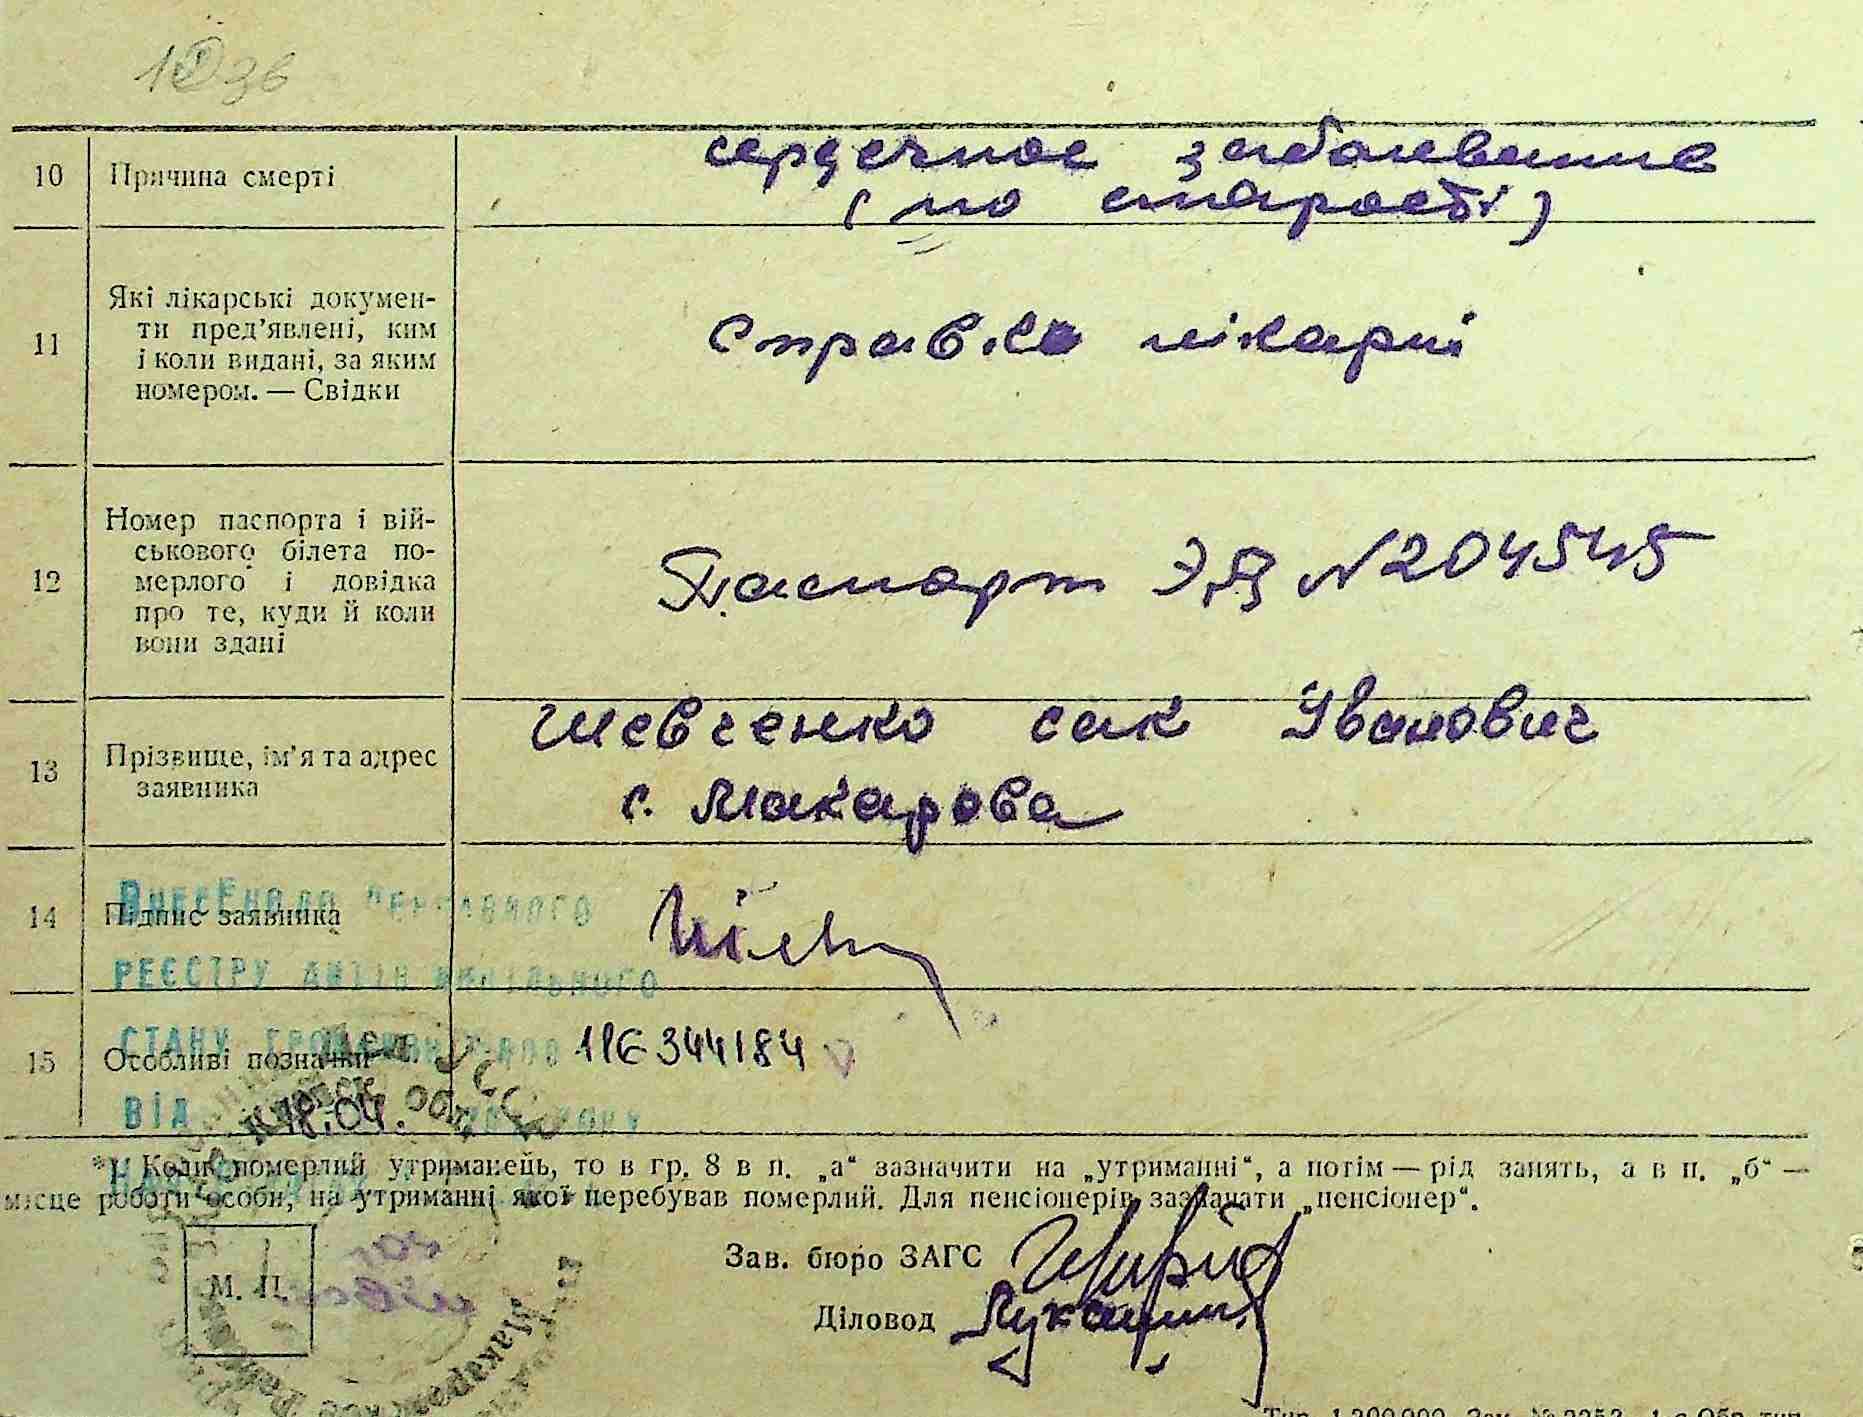 10 Причина смерті
сердечное заболевание
(по старості)
11 Які лікарські докумен-
ти пред'явлені, ким
і коли видані, за яким
номером. — Свідки
Справка лікарні
12 Номер паспорта і вій-
ськового білета по-
мерлого і довідка
про те, куди й коли
вони здані
Паспорт N 204545
13 Прізвище, ім'я та адрес
заявника
Шевченко сак Іванович
с. Макарова
14 Підпис заявника
15 Особливі позначки
344184
РЕЄСТРУ АКТІВ ЦИВІЛЬНОГО
СТАНУ ГРОМАДЯН
ВІД 18.04. РОКУ
*) Коли померлий утриманець, то в гр. 8 в п. „а“ зазначити на „утриманні“, а потім — рід занять, а в п. „б“ —
місце роботи особи, на утриманні якої перебував померлий. Для пенсіонерів зазначати „пенсіонер“.
М. П.
Зав. бюро ЗАГС
Діловод